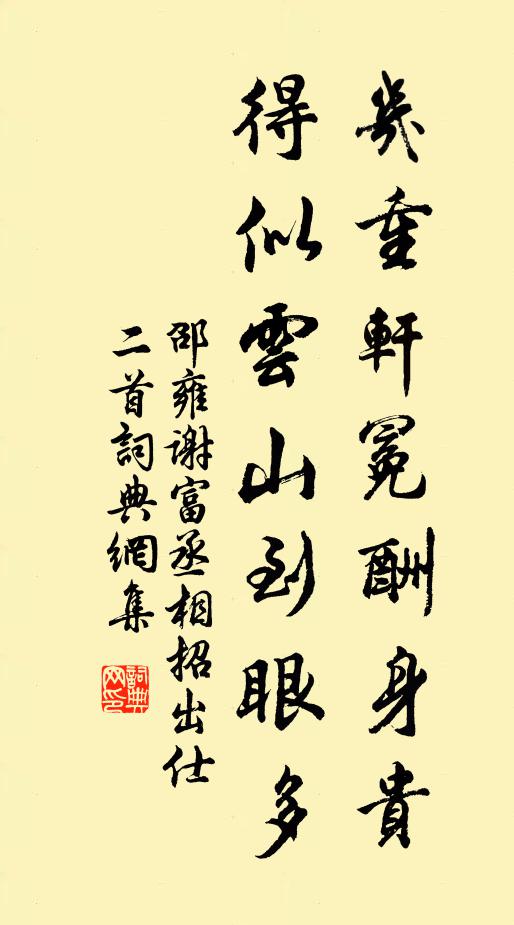 幾重軒冕酬身貴
得似雲山到眼多
邵雍謝富丞相招出仕
二首詞典網集
詞典
网印